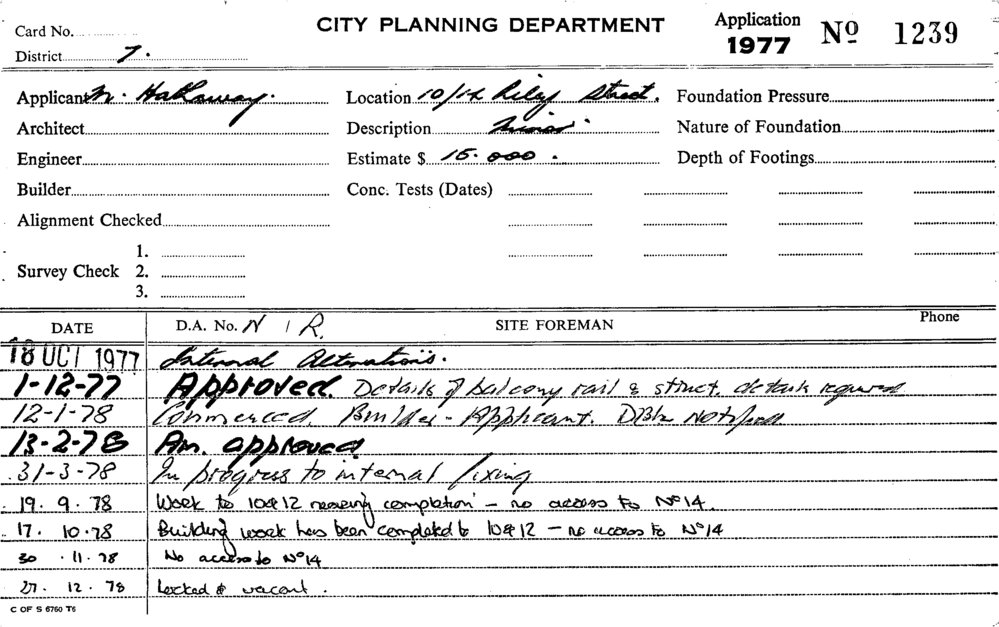 Card No.
CITY PLANNING DEPARTMENT
Application 1977 Nº 1239
District 7.
Applicant M. Hathaway. Location 10/14 Riley Street. Foundation Pressure
Architect Description Minor Nature of Foundation
Engineer Estimate $ 15.000. Depth of Footings
Builder Conc. Tests (Dates)
Alignment Checked
Survey Check 1.
2.
3.
DATE D.A. No. N I R. SITE FOREMAN Phone
18 OCT 1977 Internal Alterations.
1-12-77 Approved. Details of balcony rail & struct. details required
12-1-78 Commenced. Builder - Applicant. Notified
13-2-78 Am. approved
31-3-78 In progress to internal fixing
19. 9. 78 Work to 10&12 nearing completion - no access to Nº 14.
17. 10.78 Building work has been completed to 10&12 - no access to Nº 14
30 .11.78 No access to Nº 14
27. 12. 78 Locked & vacant.
C OF S 6760 T6